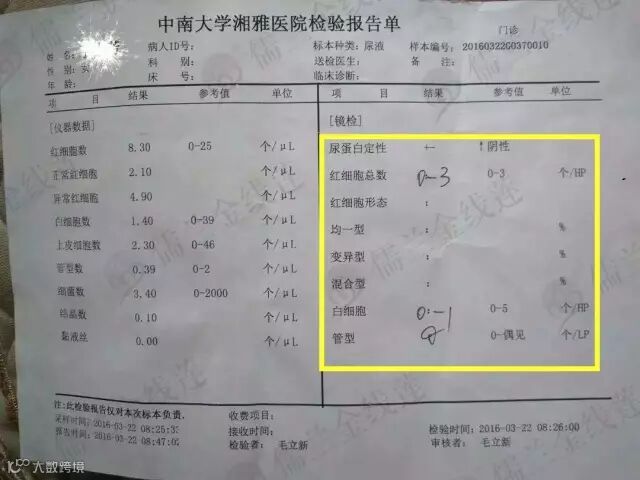 中南大学湘雅医院检验报告单
门诊
姓名：
病人ID号：
标本种类：尿液
样本编号：20160322G0370010
性别：女
科 别：
送检医生：
备 注：
年龄：
床 号：
临床诊断：
项 目 结果 参考值 单位
[仪器数据]
红细胞数 8.30 0-25 个/μL
正常红细胞 2.10 个/μL
异常红细胞 4.90 个/μL
白细胞数 1.40 0-39 个/μL
上皮细胞数 2.30 0-46 个/μL
管型数 0.39 0-2 个/μL
细菌数 3.40 0-2000 个/μL
结晶数 0.10 个/μL
黏液丝 0.00 个/μL
项 目 结果 参考值 单位
[镜检]
尿蛋白定性 +- ↑阴性
红细胞总数 0-3 0-3 个/HP
红细胞形态 ：
均一型 ： %
变异型 ： %
混合型 ： %
白细胞 0-1 0-5 个/HP
管型 0 0-偶见 个/LP
注：此检验报告仅对本次标本负责。
收费项目：
采样时间：2016-03-22 08:25:3
接收时间：
检验时间：2016-03-22 08:26:00
报告时间：2016-03-22 08:47:0
检验者： 毛立新
审核者： 毛立新
大数跨境